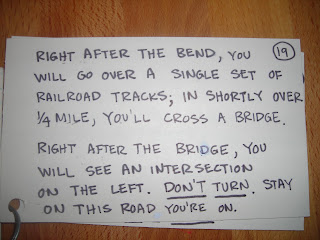 RIGHT AFTER THE BEND, YOU 19
WILL GO OVER A SINGLE SET OF
RAILROAD TRACKS; IN SHORTLY OVER
1/4 MILE, YOU'LL CROSS A BRIDGE.
RIGHT AFTER THE BRIDGE, YOU
WILL SEE AN INTERSECTION
ON THE LEFT. DON'T TURN. STAY
ON THIS ROAD YOU'RE ON.